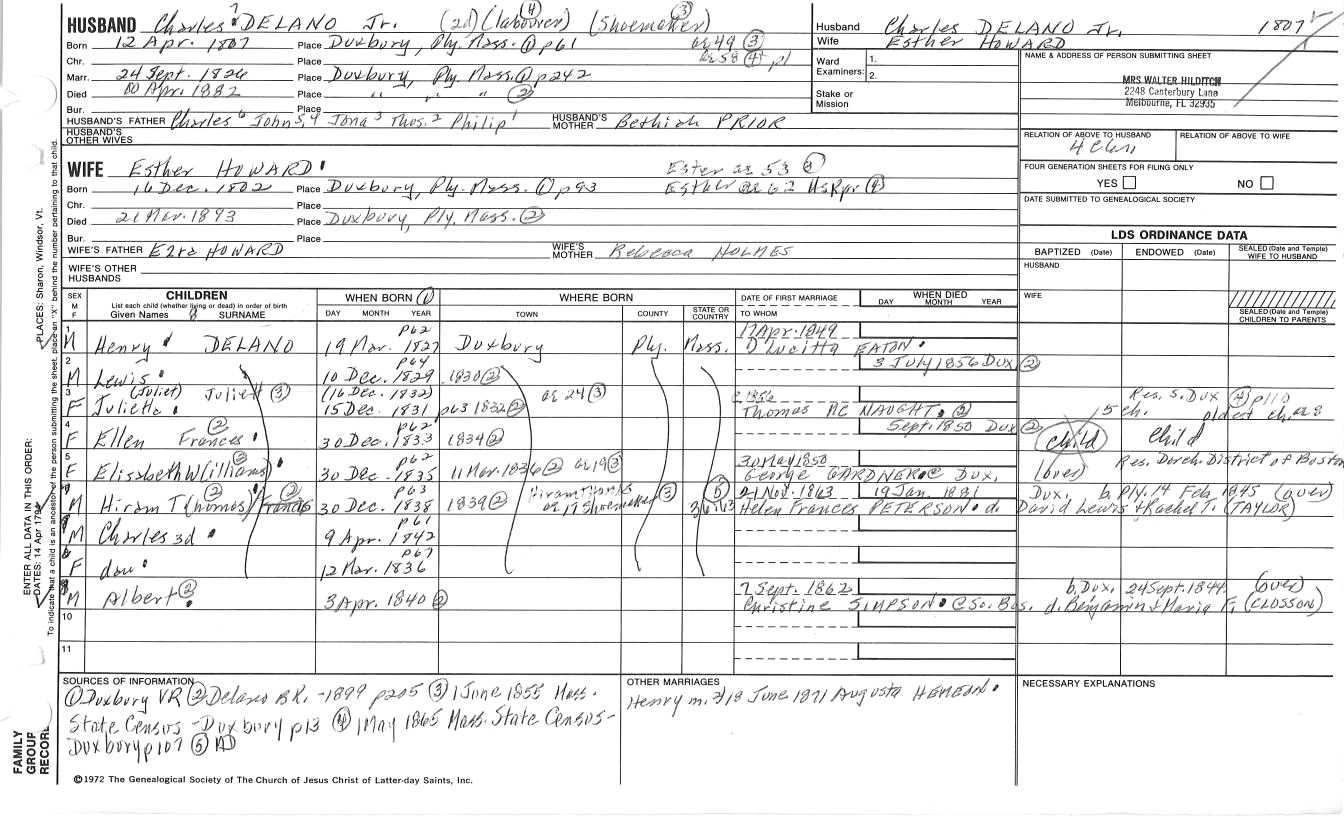 HUSBAND Charles 7 DELANO Jr. (2d) (labourer) ④ (Shoemaker) ③
Born 12 Apr. 1807 Place Duxbury, Ply. Mass. ① p61 ae 49 ③
Chr. Place ae 58 ④ p1
Marr. 24 Sept. 1826 Place Duxbury, Ply. Mass. ① p242
Died Apr. 1882 Place " " " ②
Bur. Place
HUSBAND'S FATHER Charles 6 John 5, 4 Jona 3 Thos. 2 Philip 1 HUSBAND'S MOTHER Bethiah PRIOR
HUSBAND'S OTHER WIVES
WIFE Esther HOWARD Ester ae 53 ③
Born 16 Dec. 1802 Place Duxbury, Ply. Mass. ① p93 Esther ae 62 HsKpr ④
Chr. Place
Died 21 Mar. 1893 Place Duxbury, Ply. Mass. ②
Bur. Place
WIFE'S FATHER Ezra HOWARD WIFE'S MOTHER Rebecca HOLMES
WIFE'S OTHER HUSBANDS
Husband Charles DELANO Jr. 1807
Wife Esther HOWARD
Ward Examiners: 1. 2.
Stake or Mission
NAME & ADDRESS OF PERSON SUBMITTING SHEET
MRS. WALTER HILDITCH
2248 Canterbury Lane
Melbourne, FL 32935
RELATION OF ABOVE TO HUSBAND RELATION OF ABOVE TO WIFE
FOUR GENERATION SHEETS FOR FILING ONLY
YES NO
DATE SUBMITTED TO GENEALOGICAL SOCIETY
LDS ORDINANCE DATA
BAPTIZED (Date) ENDOWED (Date) SEALED (Date and Temple) WIFE TO HUSBAND
HUSBAND
WIFE
SEALED (Date and Temple) CHILDREN TO PARENTS
SEX M F CHILDREN List each child (whether living or dead) in order of birth Given Names SURNAME WHEN BORN ① DAY MONTH YEAR WHERE BORN TOWN COUNTY STATE OR COUNTRY DATE OF FIRST MARRIAGE TO WHOM WHEN DIED DAY MONTH YEAR
1 M Henry DELANO 19 Mar. 1827 p62 Duxbury Ply. Mass. 17 Apr. 1849 EATON
2 M Lewis 10 Dec. 1829 p64 1830 ② 3 July 1856 Dux ②
3 F (Juliet) Juliett ③ Julietta (16 Dec. 1832) 15 Dec. 1831 p63 1832 ② ae 24 ③ 1856 Thomas MC NAUGHT ② Res. S. Dux ④ p110 5 ch. oldest ch. ae 8
4 F Ellen Frances ② 30 Dec. 1833 p62 1834 ② Sept. 1850 Dux ② (child) Child
5 F Elisabeth W(illiams) ② 30 Dec. 1835 p62 11 Mar. 1836 ② ae 19 ③ 30 May 1850 George GARDNER Dux, (over) Res. Dorch. District of Boston
M Hiram T(homas) ② Francis ② 30 Dec. 1838 p63 1839 ② Hiram Thomas ae 17 Shoemaker ③ 1 Nov. 1863 19 Jan. 1881 Dux, b. Ply. 14 Feb. 1845 (over)
Helen Frances PETERSON d. David Lewis & Rachel T. (TAYLOR)
M Charles 3d 9 Apr. 1842 p61
F dau 12 Mar. 1836 p67
M Albert ② 3 Apr. 1840 ② 7 Sept. 1862 b. Dux, 24 Sept. 1844 (over)
Christine SIMPSON @ So. Bos. d. Benjamin & Maria F. (CLOSSON)
10
11
SOURCES OF INFORMATION
① Duxbury VR ② Delano BK. -1899 p205 ③ 1 June 1855 Mass.
State Census - Duxbury p13 ④ 1 May 1865 Mass. State Census -
Duxbury p107 ⑤
OTHER MARRIAGES
Henry m. 2/ 18 June 1871 Augusta
NECESSARY EXPLANATIONS
©1972 The Genealogical Society of The Church of Jesus Christ of Latter-day Saints, Inc.
FAMILY GROUP RECORD
ENTER ALL DATA IN THIS ORDER:
DATES: 14 Apr 1794
PLACES: Sharon, Windsor, Vt.
To indicate that a child is an ancestor of the person submitting the sheet, place an "X" behind the number pertaining to that child.